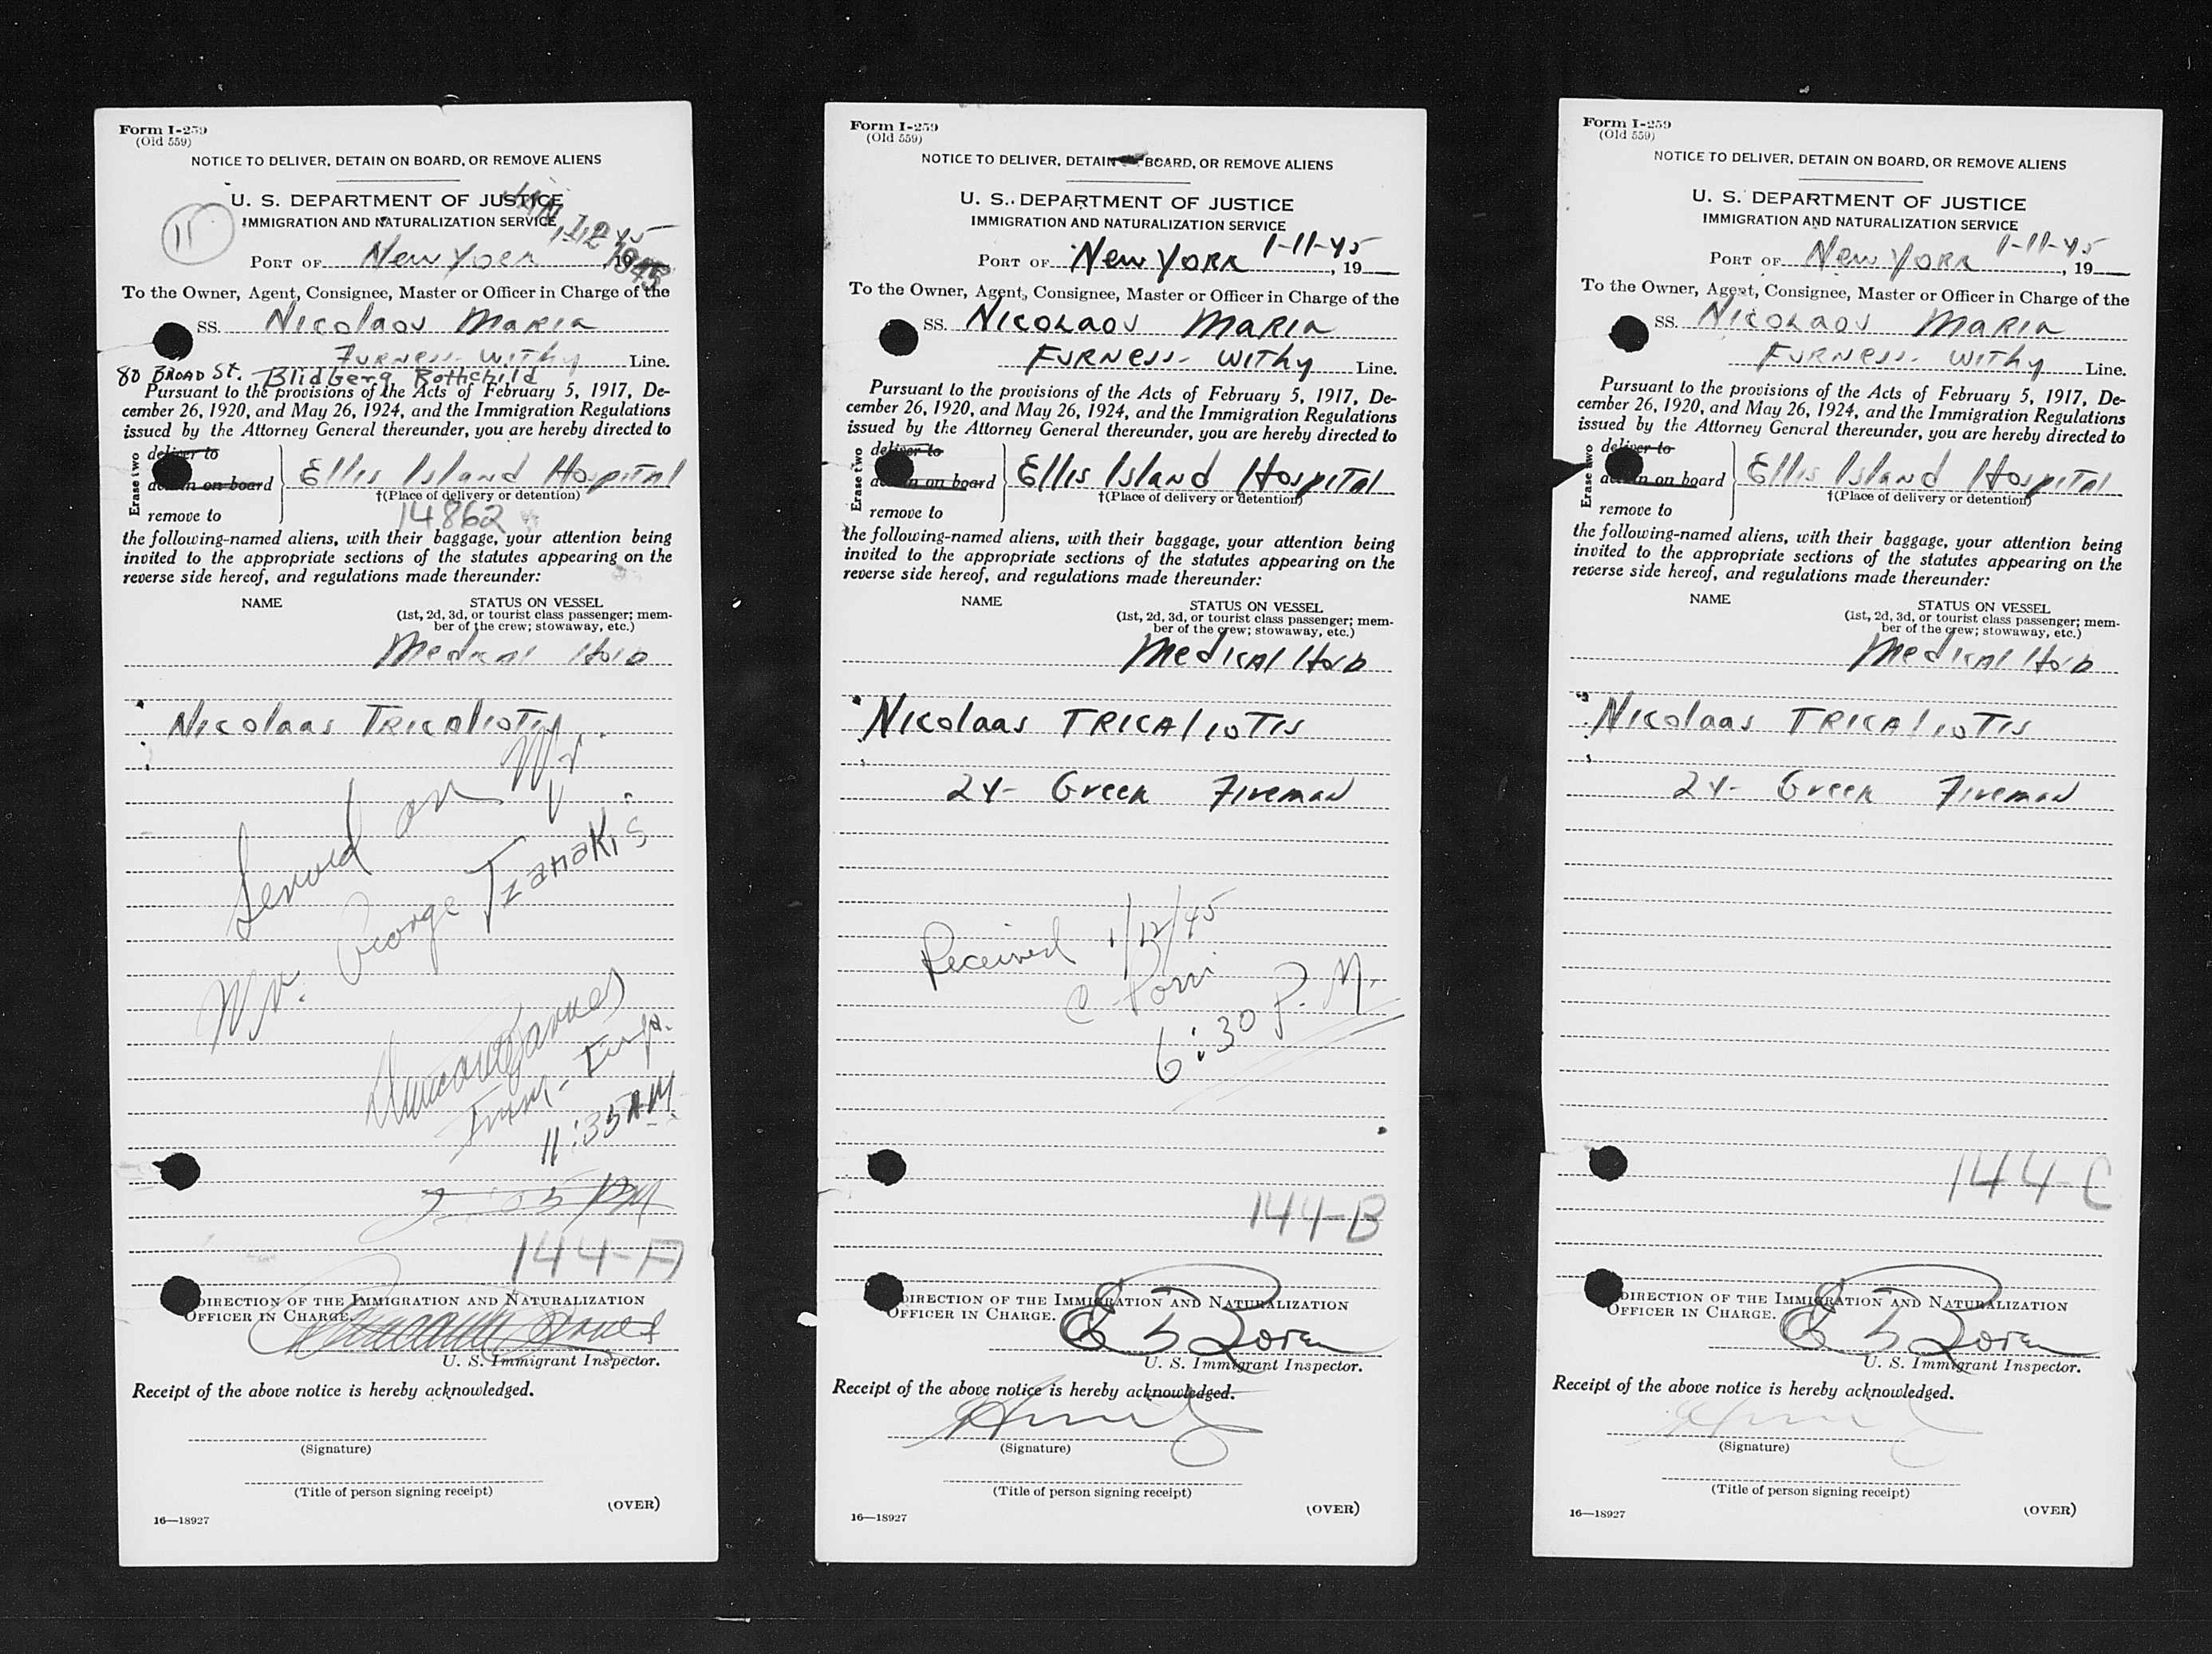 Form I-259
(Old 559)
NOTICE TO DELIVER, DETAIN ON BOARD, OR REMOVE ALIENS
U. S. DEPARTMENT OF JUSTICE
IMMIGRATION AND NATURALIZATION SERVICE
11
JAN 12 1945
PORT OF New York, 19
To the Owner, Agent, Consignee, Master or Officer in Charge of the
SS. Nicolaou Maria
Furness-Withy Line.
80 Broad St. Blidberg Rothchild
Pursuant to the provisions of the Acts of February 5, 1917, De-
cember 26, 1920, and May 26, 1924, and the Immigration Regulations
issued by the Attorney General thereunder, you are hereby directed to
Erase two
deliver to
on board
remove to
Ellis Island Hospital
†(Place of delivery or detention)
14862
the following-named aliens, with their baggage, your attention being
invited to the appropriate sections of the statutes appearing on the
reverse side hereof, and regulations made thereunder:
NAME
STATUS ON VESSEL
(1st, 2d, 3d, or tourist class passenger; mem-
ber of the crew; stowaway, etc.)
Medical Hold
Nicolaas Tricaliotis
Served on Mr
Mr. George Tzanakis
Imm. Insp.
11:35 AM
144-A
DIRECTION OF THE IMMIGRATION AND NATURALIZATION
OFFICER IN CHARGE.
U. S. Immigrant Inspector.
Receipt of the above notice is hereby acknowledged.
(Signature)
(Title of person signing receipt)
(OVER)
16—18927
Form I-259
(Old 559)
NOTICE TO DELIVER, DETAIN BOARD, OR REMOVE ALIENS
U. S. DEPARTMENT OF JUSTICE
IMMIGRATION AND NATURALIZATION SERVICE
1-11-45
PORT OF New York, 19
To the Owner, Agent, Consignee, Master or Officer in Charge of the
SS. Nicolaou Maria
Furness-Withy Line.
Pursuant to the provisions of the Acts of February 5, 1917, De-
cember 26, 1920, and May 26, 1924, and the Immigration Regulations
issued by the Attorney General thereunder, you are hereby directed to
Erase two
deliver to
on board
remove to
Ellis Island Hospital
†(Place of delivery or detention)
the following-named aliens, with their baggage, your attention being
invited to the appropriate sections of the statutes appearing on the
reverse side hereof, and regulations made thereunder:
NAME
STATUS ON VESSEL
(1st, 2d, 3d, or tourist class passenger; mem-
ber of the crew; stowaway, etc.)
Medical Hold
Nicolaas Tricaliotis
24- Greek Fireman
Received 1/12/45
C
6:30 P.M.
144-B
DIRECTION OF THE IMMIGRATION AND NATURALIZATION
OFFICER IN CHARGE.
U. S. Immigrant Inspector.
Receipt of the above notice is hereby acknowledged.
(Signature)
(Title of person signing receipt)
(OVER)
16—18927
Form I-259
(Old 559)
NOTICE TO DELIVER, DETAIN ON BOARD, OR REMOVE ALIENS
U. S. DEPARTMENT OF JUSTICE
IMMIGRATION AND NATURALIZATION SERVICE
1-11-45
PORT OF New York, 19
To the Owner, Agent, Consignee, Master or Officer in Charge of the
SS. Nicolaou Maria
Furness-Withy Line.
Pursuant to the provisions of the Acts of February 5, 1917, De-
cember 26, 1920, and May 26, 1924, and the Immigration Regulations
issued by the Attorney General thereunder, you are hereby directed to
Erase two
deliver to
on board
remove to
Ellis Island Hospital
†(Place of delivery or detention)
the following-named aliens, with their baggage, your attention being
invited to the appropriate sections of the statutes appearing on the
reverse side hereof, and regulations made thereunder:
NAME
STATUS ON VESSEL
(1st, 2d, 3d, or tourist class passenger; mem-
ber of the crew; stowaway, etc.)
Medical Hold
Nicolaas Tricaliotis
24- Greek Fireman
144-C
DIRECTION OF THE IMMIGRATION AND NATURALIZATION
OFFICER IN CHARGE.
U. S. Immigrant Inspector.
Receipt of the above notice is hereby acknowledged.
(Signature)
(Title of person signing receipt)
(OVER)
16—18927